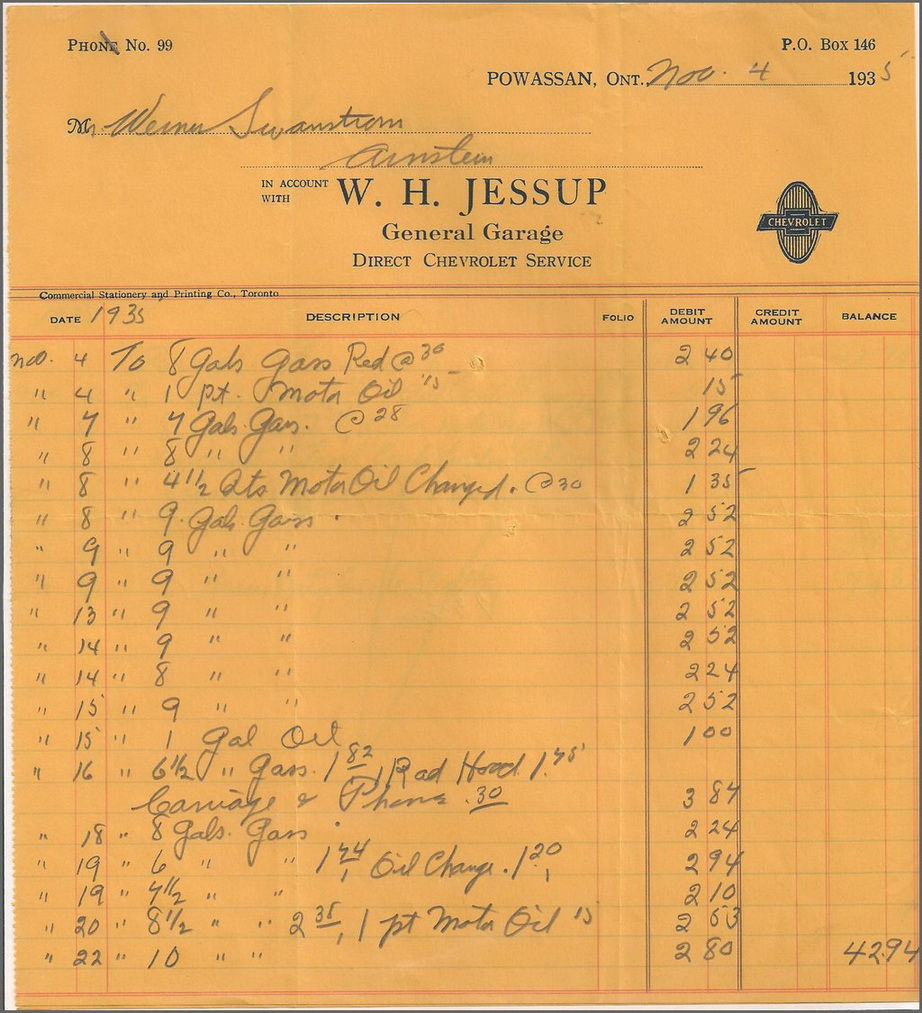 PHONE No. 99
P.O. Box 146
POWASSAN, ONT., Nov. 4 1935
Mr Werner Swanstrom
Arnstein
IN ACCOUNT WITH W. H. JESSUP
General Garage
DIRECT CHEVROLET SERVICE
CHEVROLET
Commercial Stationery and Printing Co., Toronto
DATE 1935 DESCRIPTION FOLIO DEBIT AMOUNT CREDIT AMOUNT BALANCE
Nov. 4 To 8 Gals Gass Red @ 30 2 40
" 4 " 1 pt. Motor Oil 15 15
" 7 " 7 Gals. Gass. @ 28 1 96
" 8 " 8 " " 2 24
" 8 " 4 1/2 Qts Motor Oil Changed. @ 30 1 35
" 8 " 9 Gals Gass. 2 52
" 9 " 9 " " 2 52
" 9 " 9 " " 2 52
" 13 " 9 " " 2 52
" 14 " 9 " " 2 52
" 14 " 8 " " 2 24
" 15 " 9 " " 2 52
" 15 " 1 Gal Oil 1 00
" 16 " 6 1/2 " Gass. 1 82, 1 Rad 1.75
Carriage & Phone .30 3 84
" 18 " 8 Gals. Gass. 2 24
" 19 " 6 " " 1 74, Oil Change. 1 20 2 94
" 19 " 7 1/2 " " 2 10
" 20 " 8 1/2 " " 2 38, 1 pt Motor Oil 15 2 53
" 22 " 10 " " 2 80 42.94